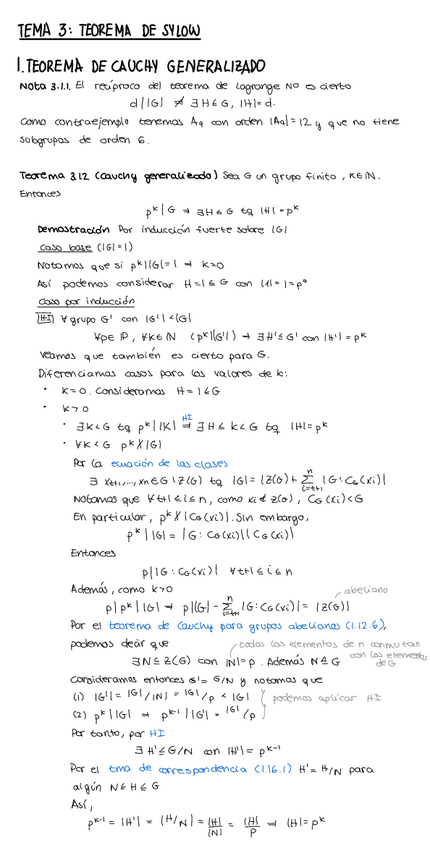 TEMA 3: TEOREMA DE SYLOW
1. TEOREMA DE CAUCHY GENERALIZADO
Nota 3.1.1. El recíproco del teorema de Lagrange NO es cierto
d | |G| ⇏ ∃ H ≤ G, |H| = d.
Como contraejemplo tenemos A₄ con orden |A₄| = 12 y que no tiene
subgrupos de orden 6.
Teorema 3.1.2 (Cauchy generalizado) Sea G un grupo finito, k ∈ ℕ.
Entonces
pᵏ | G ⇒ ∃ H ≤ G tq |H| = pᵏ
Demostración Por inducción fuerte sobre |G|
Caso base (|G| = 1)
Notamos que si pᵏ | |G| = 1 ⇒ k = 0
Así podemos considerar H = 1 ≤ G con |H| = 1 = p⁰
Caso por inducción
[H.I] ∀ grupo G' con |G'| < |G|
∀p ∈ ℙ, ∀k ∈ ℕ (pᵏ | |G'|) ⇒ ∃ H' ≤ G' con |H'| = pᵏ
Veamos que también es cierto para G.
Diferenciamos casos para los valores de k:
• k = 0. Consideramos H = 1 ≤ G
• k > 0
• ∃ K < G tq pᵏ | |K| ⇒ (HI) ∃ H ≤ K < G tq |H| = pᵏ
• ∀ K < G pᵏ ∤ |G|
Por la ecuación de las clases
∃ xₜ₊₁, ..., xₙ ∈ G \ Z(G) tq |G| = |Z(G)| + ∑ⁿᵢ₌ₜ₊₁ |G : C_G(xᵢ)|
Notamos que ∀ t+1 ≤ i ≤ n, como xᵢ ∉ Z(G), C_G(xᵢ) < G
En particular, pᵏ ∤ |C_G(xᵢ)|. Sin embargo,
pᵏ | |G| = |G : C_G(xᵢ)| |C_G(xᵢ)|
Entonces
p | |G : C_G(xᵢ)| ∀ t+1 ≤ i ≤ n
Además, como k > 0
abeliano
p | pᵏ | |G| ⇒ p | |G| - ∑ⁿᵢ₌ₜ₊₁ |G : C_G(xᵢ)| = |Z(G)|
Por el teorema de Cauchy para grupos abelianos (1.12.6),
podemos decir que
todos los elementos de N conmutan
con los elementos
de G
∃ N ≤ Z(G) con |N| = p. Además N ⊴ G
Consideramos entonces G' = G/N y notamos que
(1) |G'| = |G|/|N| = |G|/p < |G|
podemos aplicar HI
(2) pᵏ | |G| ⇒ pᵏ⁻¹ | |G'| = |G|/p
Por tanto, por HI
∃ H' ≤ G/N con |H'| = pᵏ⁻¹
Por el tma de correspondencia (1.16.1) H' = H/N para
algún N ≤ H ≤ G
Así,
pᵏ⁻¹ = |H'| = |H/N| = |H|/|N| = |H|/p ⇒ |H| = pᵏ